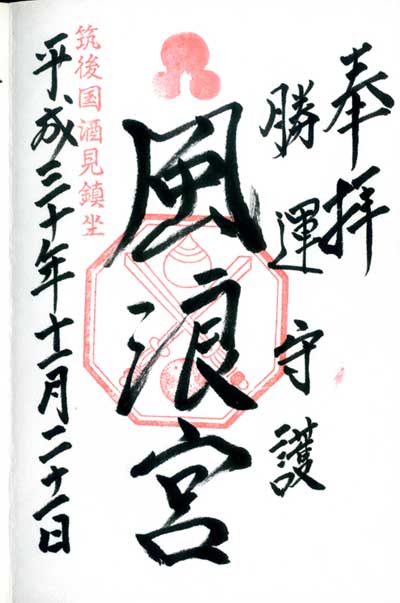 奉拝
勝運守護
風浪宮
筑後国酒見鎮坐
平成三十年十一月二十一日